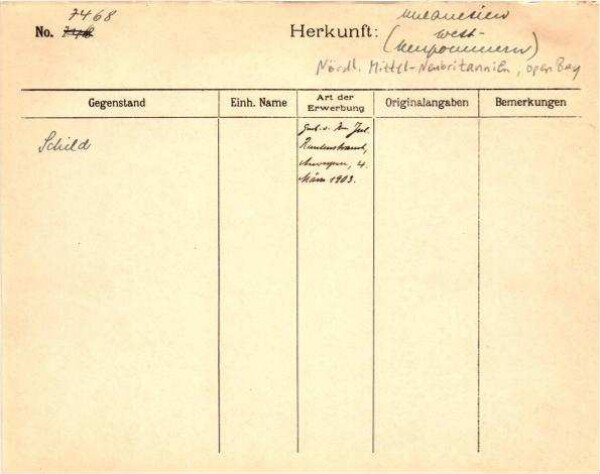 7468
No. Herkunft: Melanesien
(West-
Neupommern)
Nördl. Mittel-Neubritannien, Open Bay
Gegenstand Einh. Name Art der Erwerbung Originalangaben Bemerkungen
Schild
Jul.
Rautenstrauch,
Antwerpen, 4.
März 1903.